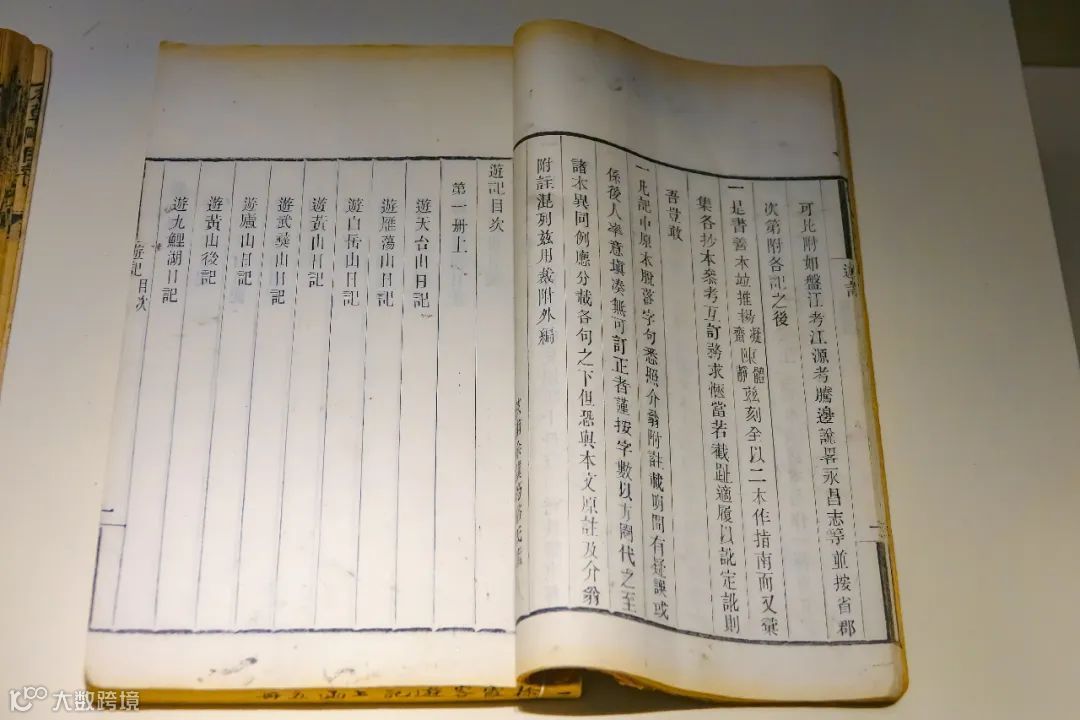 可比附如盤江考江源考騰邊說畧永昌志等並按省郡
次第附各記之後
一是書善本並推楊凝齋陳體靜茲刻全以二本作指南而又彙
集各抄本參考互訂務求愜當若截趾適履以訛定訛則
吾豈敢
一此記中原本脫落字句悉照介翁附註載明間有疑誤或
係後人率意塡湊無可訂正者謹按字數以方圈代之至
諸本異同例應分載各句之下但恐與本文原註及介翁
附註混列茲用裁附外編
遊記目次
第一册上
遊天台山日記
遊雁蕩山日記
遊白岳山日記
遊黃山日記
遊武彝山日記
遊廬山日記
遊黃山後記
遊九鯉湖日記
遊記目次
一
徐霞客遊記上函五冊
大数跨境